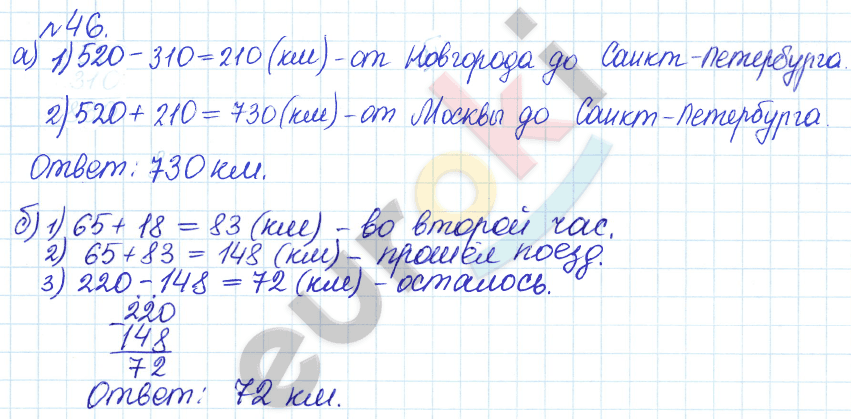 №46.
а) 1) 520 - 310 = 210 (км) - от Новгорода до Санкт-Петербурга.
2) 520 + 210 = 730 (км) - от Москвы до Санкт-Петербурга.
Ответ: 730 км.
б) 1) 65 + 18 = 83 (км) - во второй час.
2) 65 + 83 = 148 (км) - прошёл поезд.
3) 220 - 148 = 72 (км) - осталось.
220
- 148
72
Ответ: 72 км.
euroki